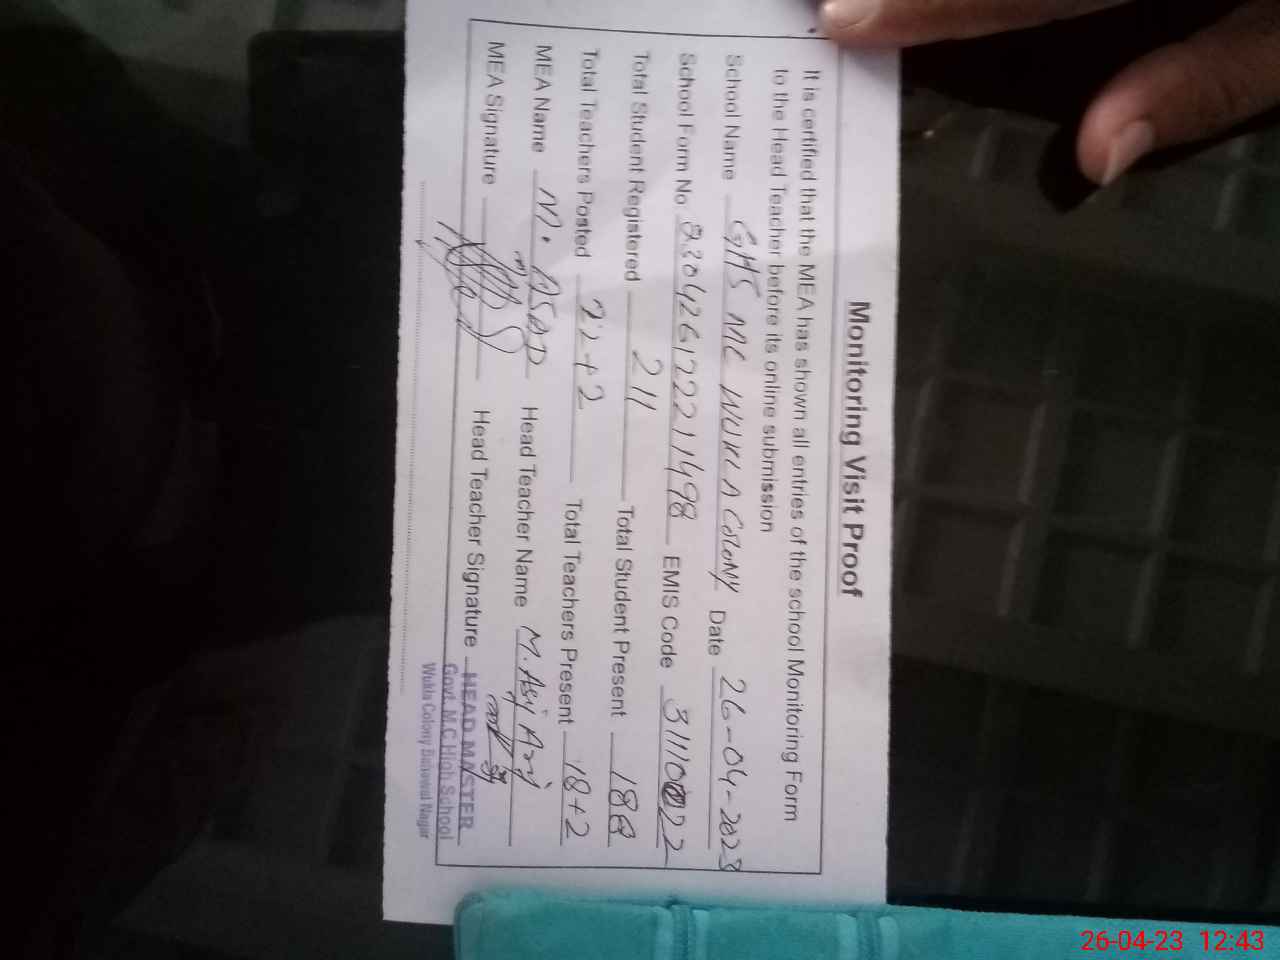 Monitoring Visit Proof
It is certified that the MEA has shown all entries of the school Monitoring Form
to the Head Teacher before its online submission
School Name GHS MC WUKLA COLONY Date 26-04-2023
School Form No 230426122211498 EMIS Code 31110022
Total Student Registered 211 Total Student Present 188
Total Teachers Posted 22+2 Total Teachers Present 18+2
MEA Name M. ASAD Head Teacher Name M. Asif
MEA Signature Head Teacher Signature
HEAD MASTER
Govt. M.C High School
Wukla Colony Bahawal Nagar
26-04-23 12:43